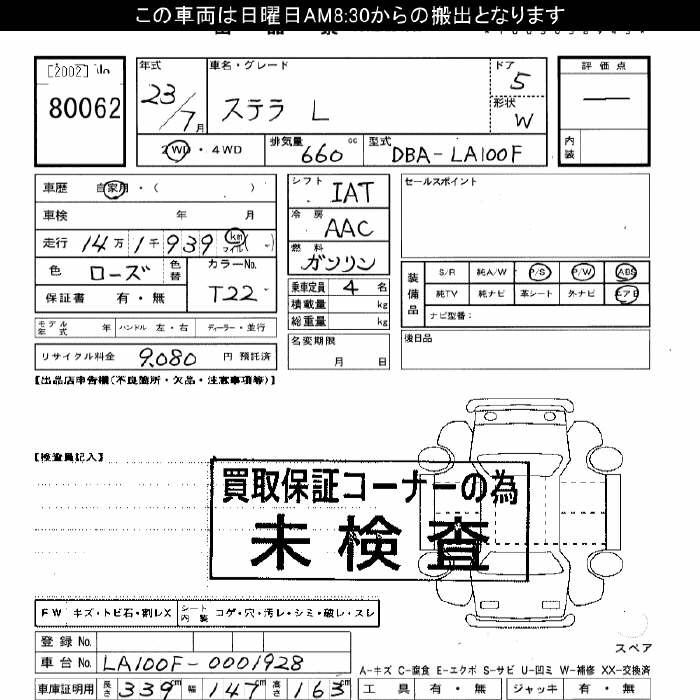 この車両は日曜日AM8:30からの搬出となります
[2002] No
80062
年式 23/7月
車名・グレード ステラ L
ドア 5
形状 W
評価点 —
内装
2WD・4WD
排気量 660 cc
型式 DBA-LA100F
車歴 自家用・( )
車検 年 月
走行 14万1千939 km マイル( )
色 ローズ 色替
カラーNo. T22
保証書 有・無
モデル年式 年 ハンドル 左・右 ディーラー・並行
リサイクル料金 9,080 円 預託済
シフト IAT
冷房 AAC
燃料 ガソリン
乗車定員 4 名
積載量 kg
総重量 kg
名変期限
月 日
セールスポイント
装備品
S/R 純A/W P/S P/W ABS
純TV 純ナビ 革シート 外ナビ エアB
ナビ型番:
後日品
【出品店申告欄(不良箇所・欠品・注意事項等)】
【検査員記入】
買取保証コーナーの為
未検査
FW キズ・トビ石・割レX シート内装 コゲ・穴・汚レ・シミ・破レ・スレ
登録No.
車台No. LA100F-0001928
車庫証明用 長さ 339cm 幅 147cm 高さ 163cm
スペア
A-キズ C-腐食 E-エクボ S-サビ U-凹ミ W-補修 XX-交換済
工具 有・無 ジャッキ 有・無